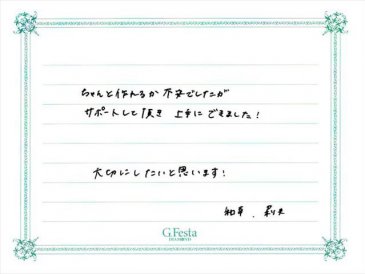 ちゃんと作れるか不安でしたが
サポートして頂き 上手にできました!
大切にしたいと思います!
G.Festa
DIAMOND